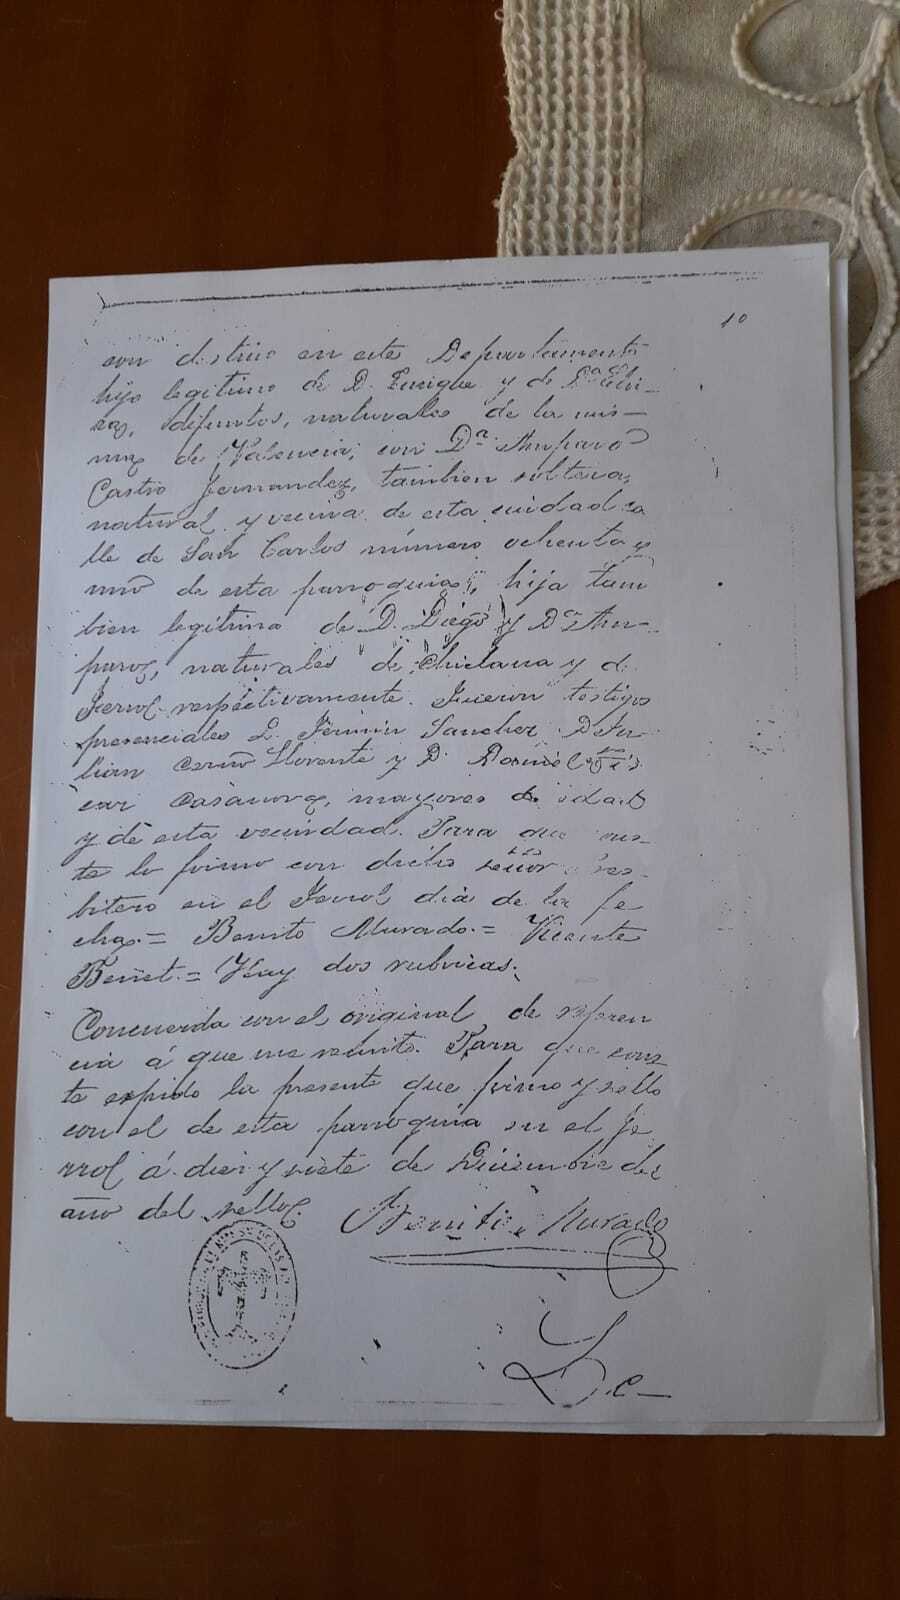 10
con destino en este Departamento
hijo legitimo de D. Enrique y de Dª
difuntos, naturales de la mis-
ma de Valencia, con Dª Amparo
Castro Fernandez, tambien soltera,
natural y vecina de esta ciudad ca
lle de San Carlos número ochenta y
uno de esta parroquia, hija tam
bien legitima de D. Diego y Dª Am-
paro, naturales de Chiclana y de
Ferrol respectivamente. Fueron testigos
presenciales D. Fermin Sanchez D. Ju-
lian Cerro Llorente y D. Daniel
Casanova, mayores de edad
y de esta vecindad. Para que cons-
te lo firmo con dicho señor Pres-
bitero en el Ferrol dia de la fe
cha.= Benito Murado.= Vicente
Benet.= Hay dos rubricas.
Concuerda con el original de referen
cia á que me remito. Para que cons
te expido la presente que firmo y sello
con el de esta parroquia en el Fe
rrol á diez y siete de Diciembre del
año del sello.
Benito Murado